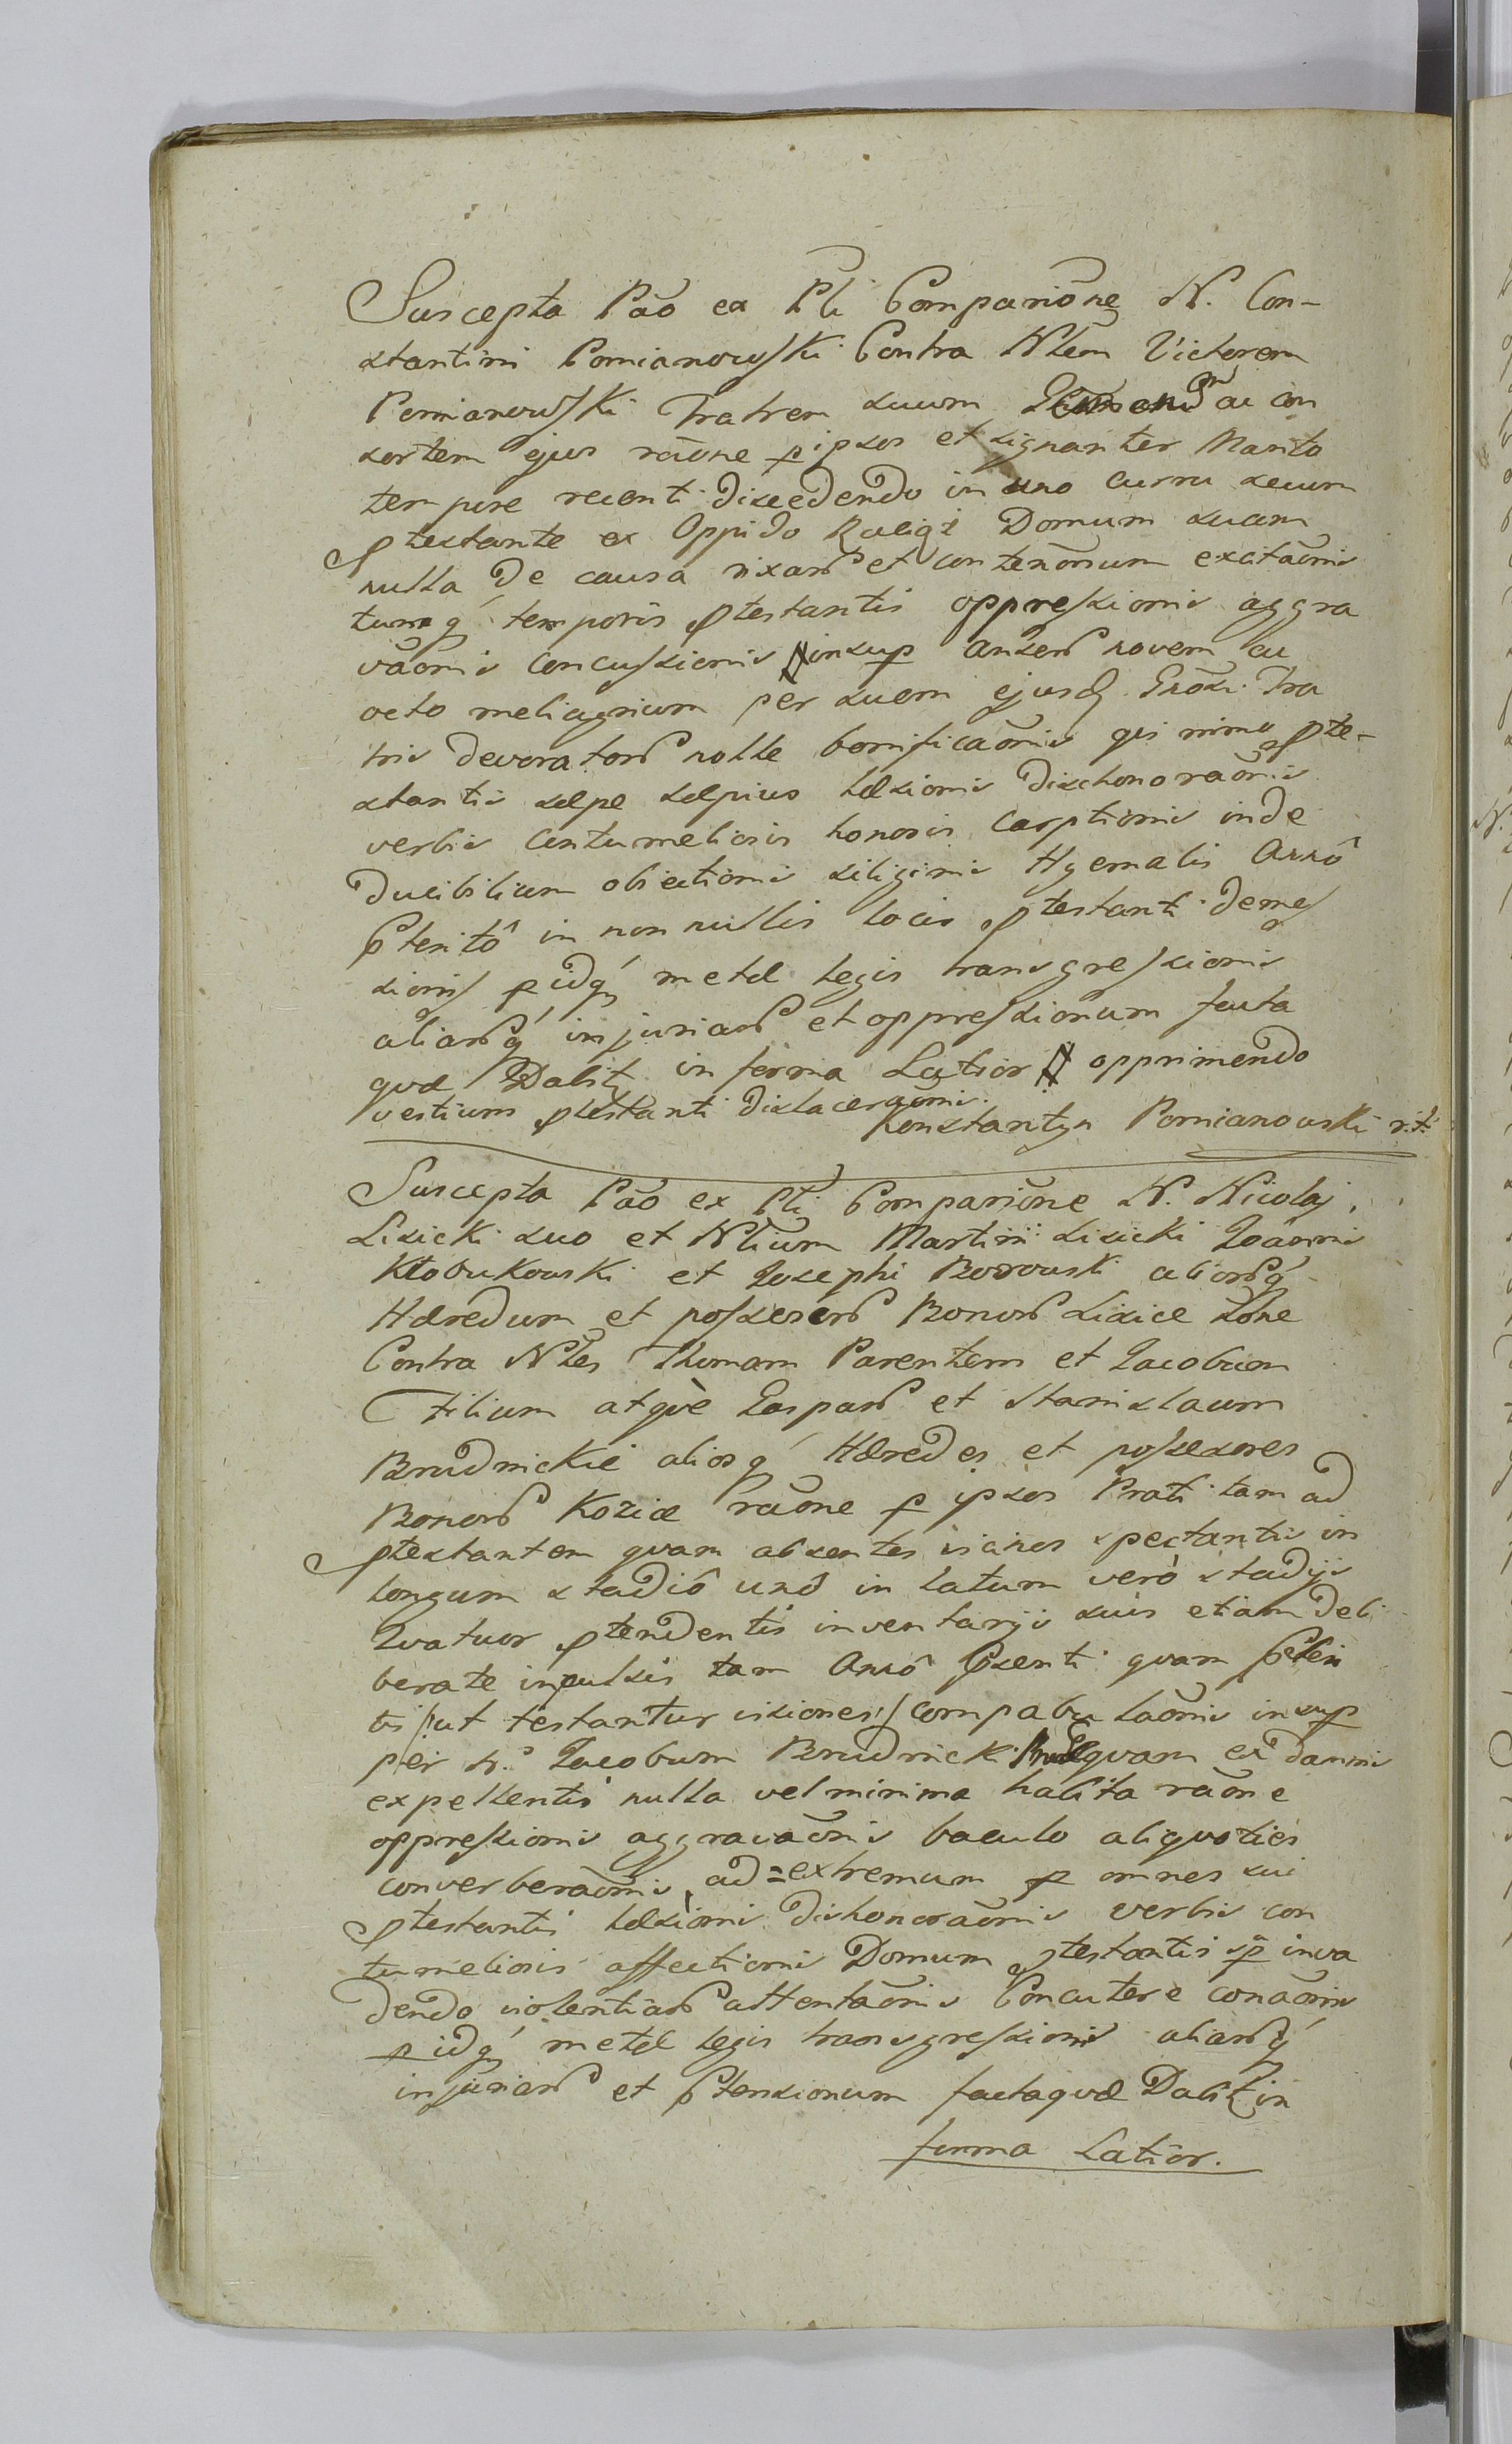 Suscepta Pão ex Pti Comparitione N. Con-
stantini Pomianowski Contra Nlem Victorem
Pomianowski Fratrem suum ac con
sortem ejus raõne p ipsos et signanter Marito
tempore recenti discedendo in uno curru secum
Ptestante ex Oppido Raligi Domum suam
nulla de causa rixarum et contenõnum excitaõnis
tumq́ temporis Ptestantis oppressionis aggra
vaõnis concussionis insup anserũ novem ac
octo meliagrium per suem ejusd. Fra
tris devoratorũ nolle bonificaõnis qui nimo Pte-
stantis sæpe sæpius læsionis dischonoraõnis
verbis contumeliosis honoris carptionis inde
ducibilium obiectionis siliginis Hyemalis Annô
Pteritô in non nullis locis Ptestanti demes
sionis p idq́ metæ legis transgressionis
aliarũq́ injuriarũ et oppressionum facta
quæ Dabitĩ in forma Latior opprimendo
vestium Ptestanti dislaceraõnis.
Konstantyn Pomianowski
Suscepta Pão ex Pti Comparitione N. Nicolaj
Lisicki suo et Nlium Martini Lisicki Joannis
Kłobukowski et Josephi Borowski aliorũq́
Hæredum et possesorũ Bonorũ Lisice
Contra Nles Thomam Parentem et Jacobum
Filium atqùe Gasparũ et Stanislaum
Brudnickie aliosq́ Hæredes et possesores
Bonorũ Koziæ raõne p ipsos Prati tam ad
Ptestantem quam absentes vicinos spectantis in
longum stadiô unô in latum verò stadijs
Quatuor Ptendentis inventarijs suis etiam deli
berate inpulsis tam Annô Psenti quam Pteri
ti /:ut testantur visiones:/ compabulaõnis insup
per N. Jacobum Brudnicki equam ex damnis
expellentis nulla vel minima habita raõne
oppressionis aggravaõnis baculo aliquoties
converberaõnis, ad=extremum p omnes sui
Ptestantis læsionis dishonoraõnis verbis con
tumeliosis affectionis Domum Ptestantis inva
dendo violentiarũ attentaõnis Concutere conaõnis
p idq́ metæ legis transgressionis aliarũq́
injuriarũ et Ptensionum factaquæ Dabitĩ in
forma Latior.